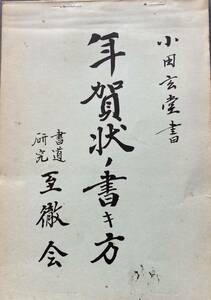 小田玄堂書
年賀状ノ書キ方
書道研究 至徹会